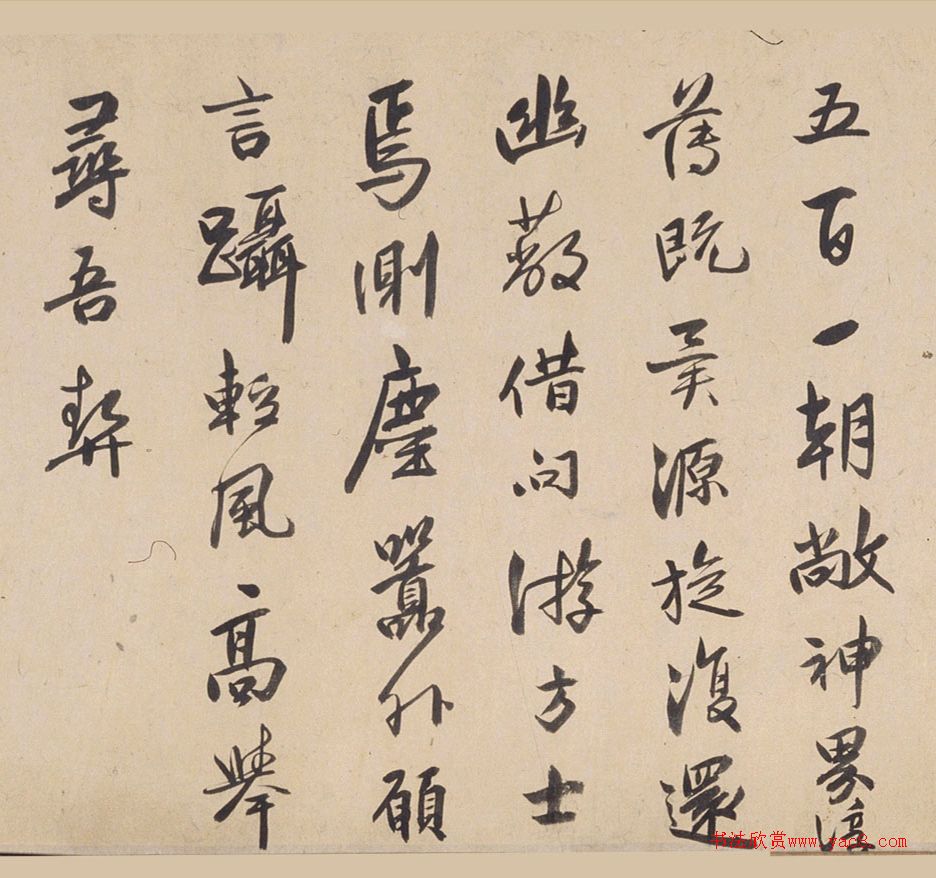 五百一朝敞神界淳
薄既異源旋復還
幽蔽借問游方士
焉測塵囂外願
言躡輕風高舉
尋吾契
书法欣赏www.yac8.com